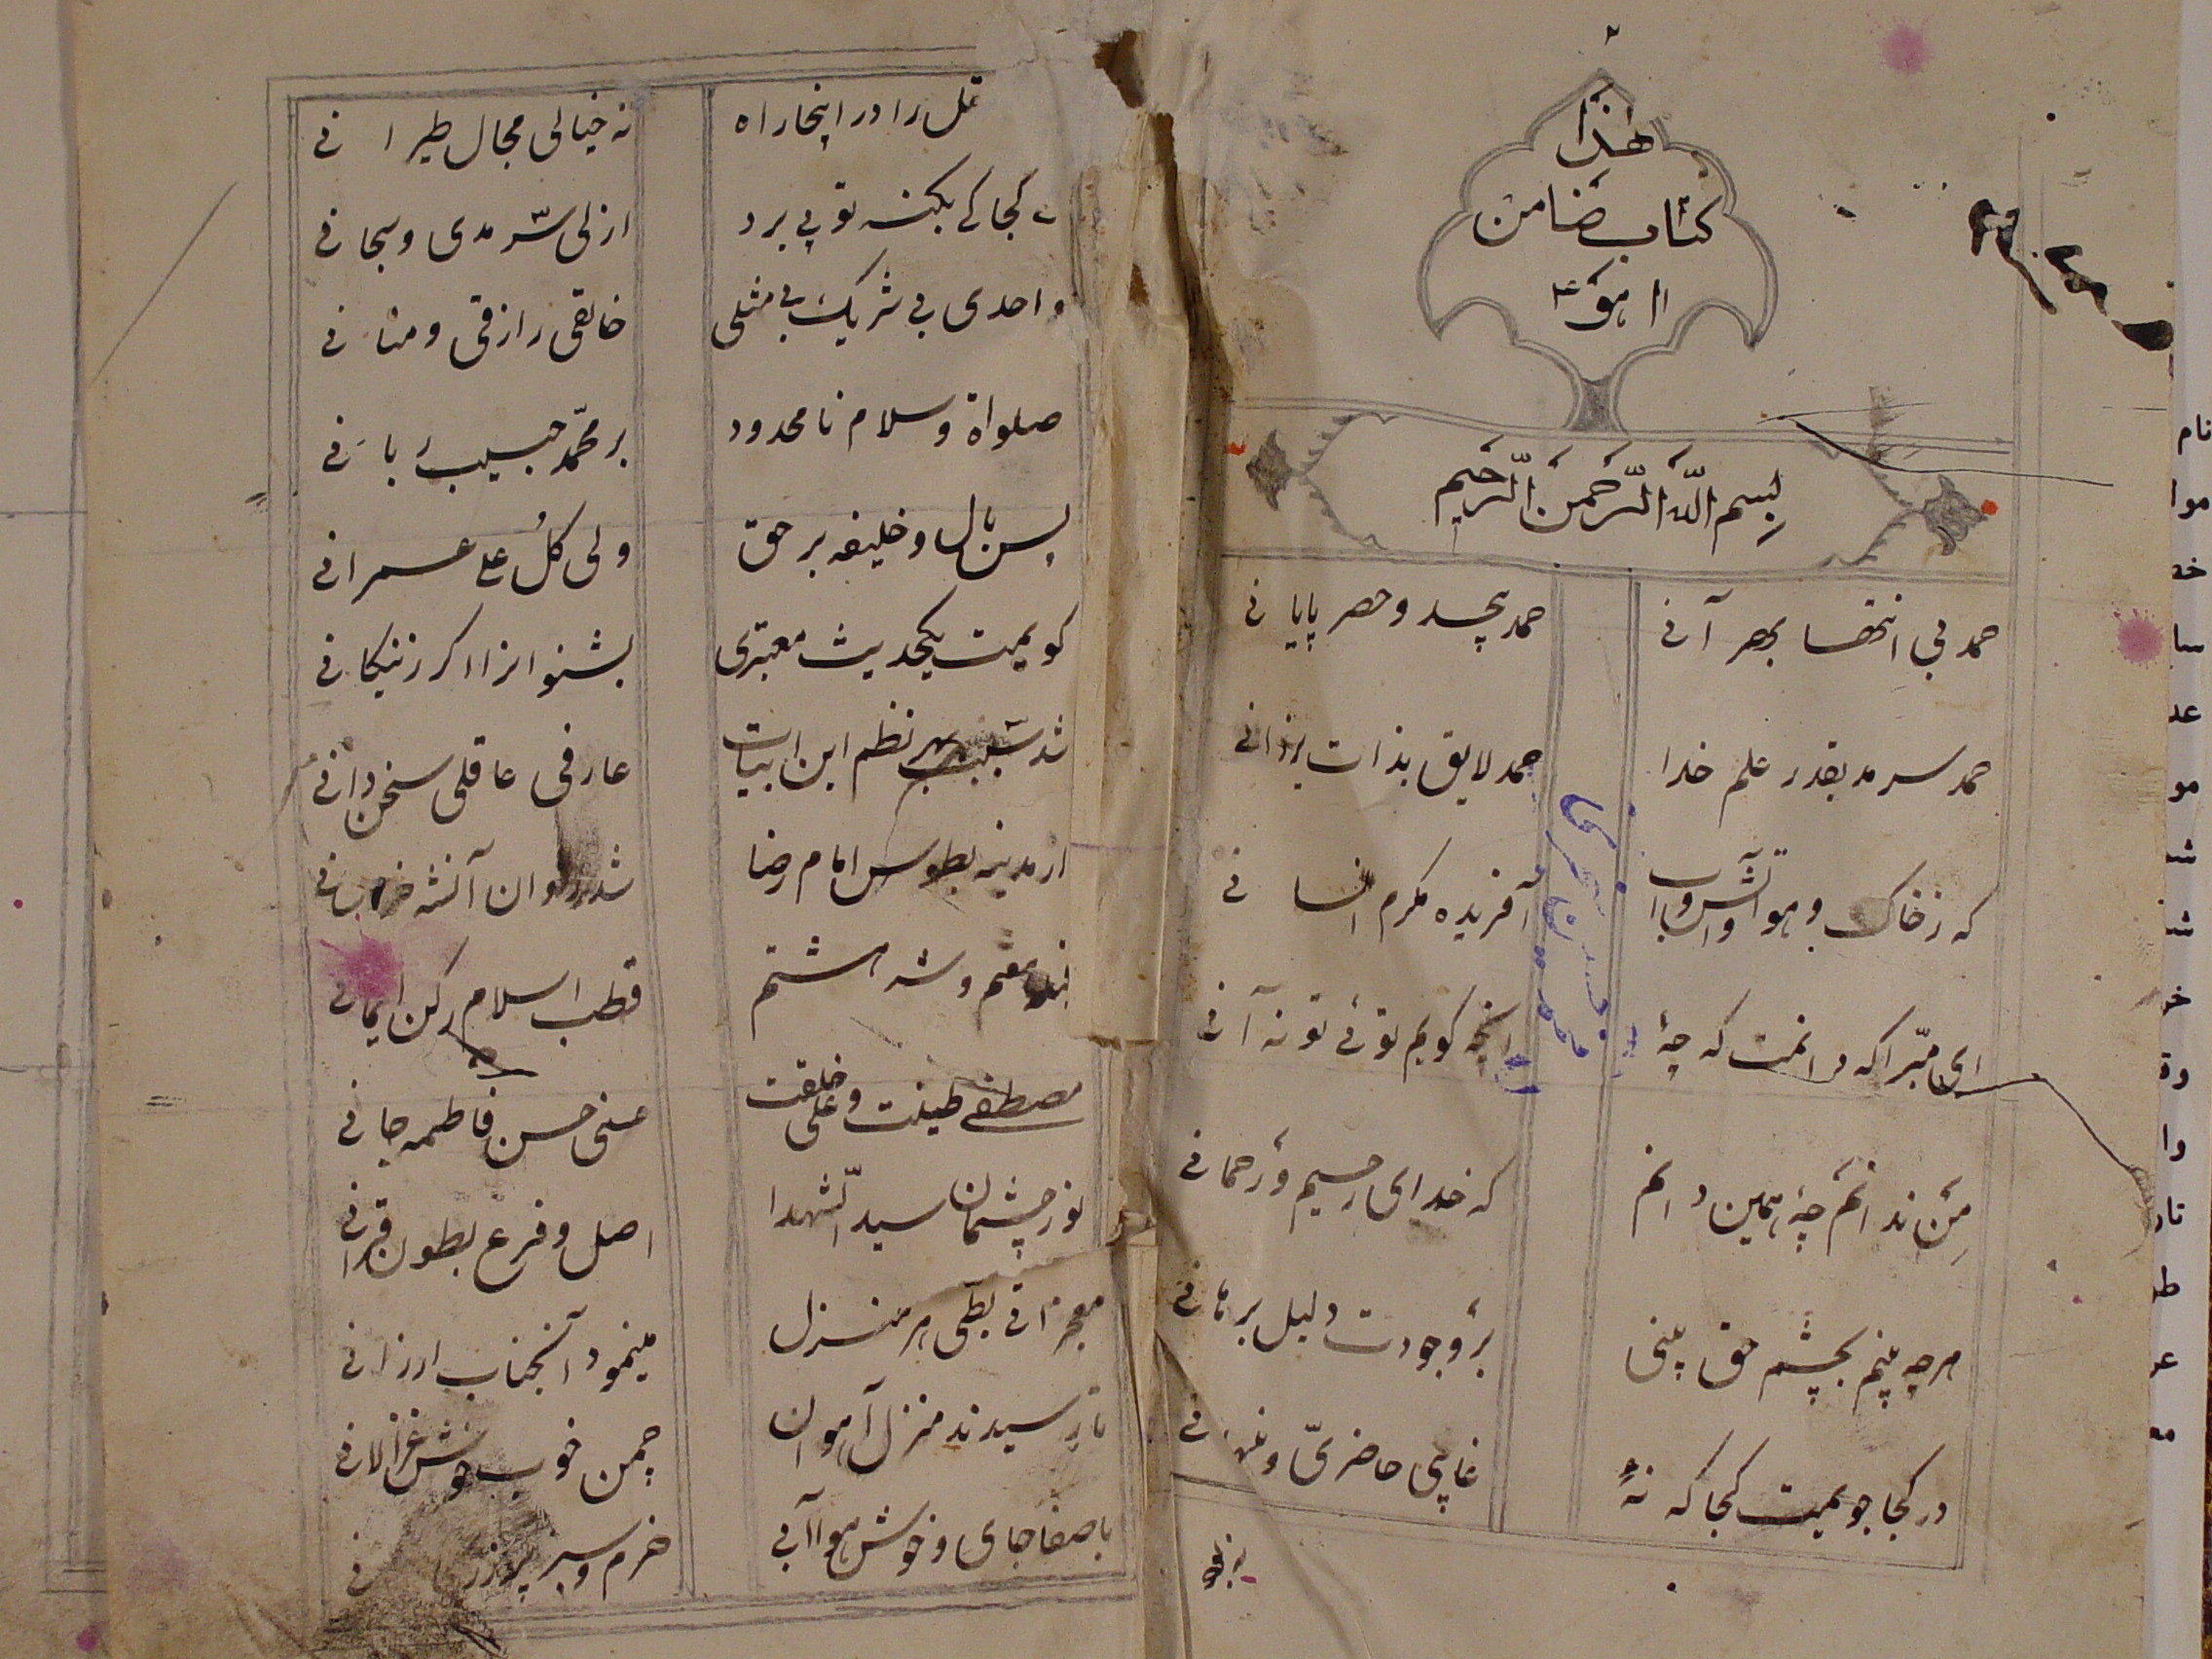 هذا
کتاب ضامن
اا هو
بسم الله الرحمن الرحیم
حمد بی انتها بهر آنی
حمد بیحد و حصر پایانی
حمد سرمد بقدر علم خدا
حمد لایق بذات یزدانی
که ز خاک و هوا و آتش و آب
آفریده مکرم انسانی
ای مبرا که دانمت که چۀ
انچه کویم توئی تو نه آنی
من ندانم چۀ همین دانم
که خدای رحیم و رحمانی
هر چه بینم بچشم حق بینی
بر وجودت دلیل برهانی
در کجا جویمت کجا که نۀ
غایبی حاضری و
را در اینجا راه
نه خیالی مجال طیرانی
کجا کی بکنه تو پی برد
ازلی سرمدی و سبحانی
واحدی بی شریک بی مثلی
خالقی رازقی و منانی
صلواة و سلام نامحدود
بر محمد حبیب
پس بآل و خلیفه بر حق
ولی کل علی عمرانی
کویمت یکحدیث معتبری
بشنو انرا اکر ز نیکانی
شد سبب بهر نظم این ابیات
عارفی عاقلی سخن دانی
از مدینه بطوس امام رضا
شد روان آنشه
و شه هشتم
قطب اسلام رکن ایمانی
مصطفی طینت و علی خلقت
حسن فاطمه جانی
نور چشمان سید الشهدا
اصل و فرع بطون قرانی
معجزاتی بطی هر منزل
مینمود آنجناب ارزانی
تا رسیدند منزل آهوان
چمن خوب خوش غزالانی
با صفا جای و خوش هوا آبی
خرم و سبز